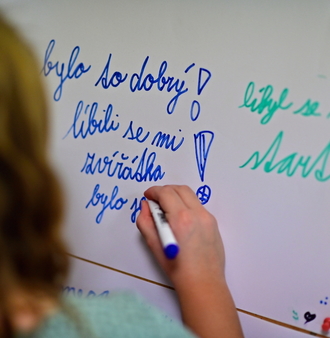 bylo to dobrý!
líbili se mi
zvířátka!
bylo
líbyl se
start